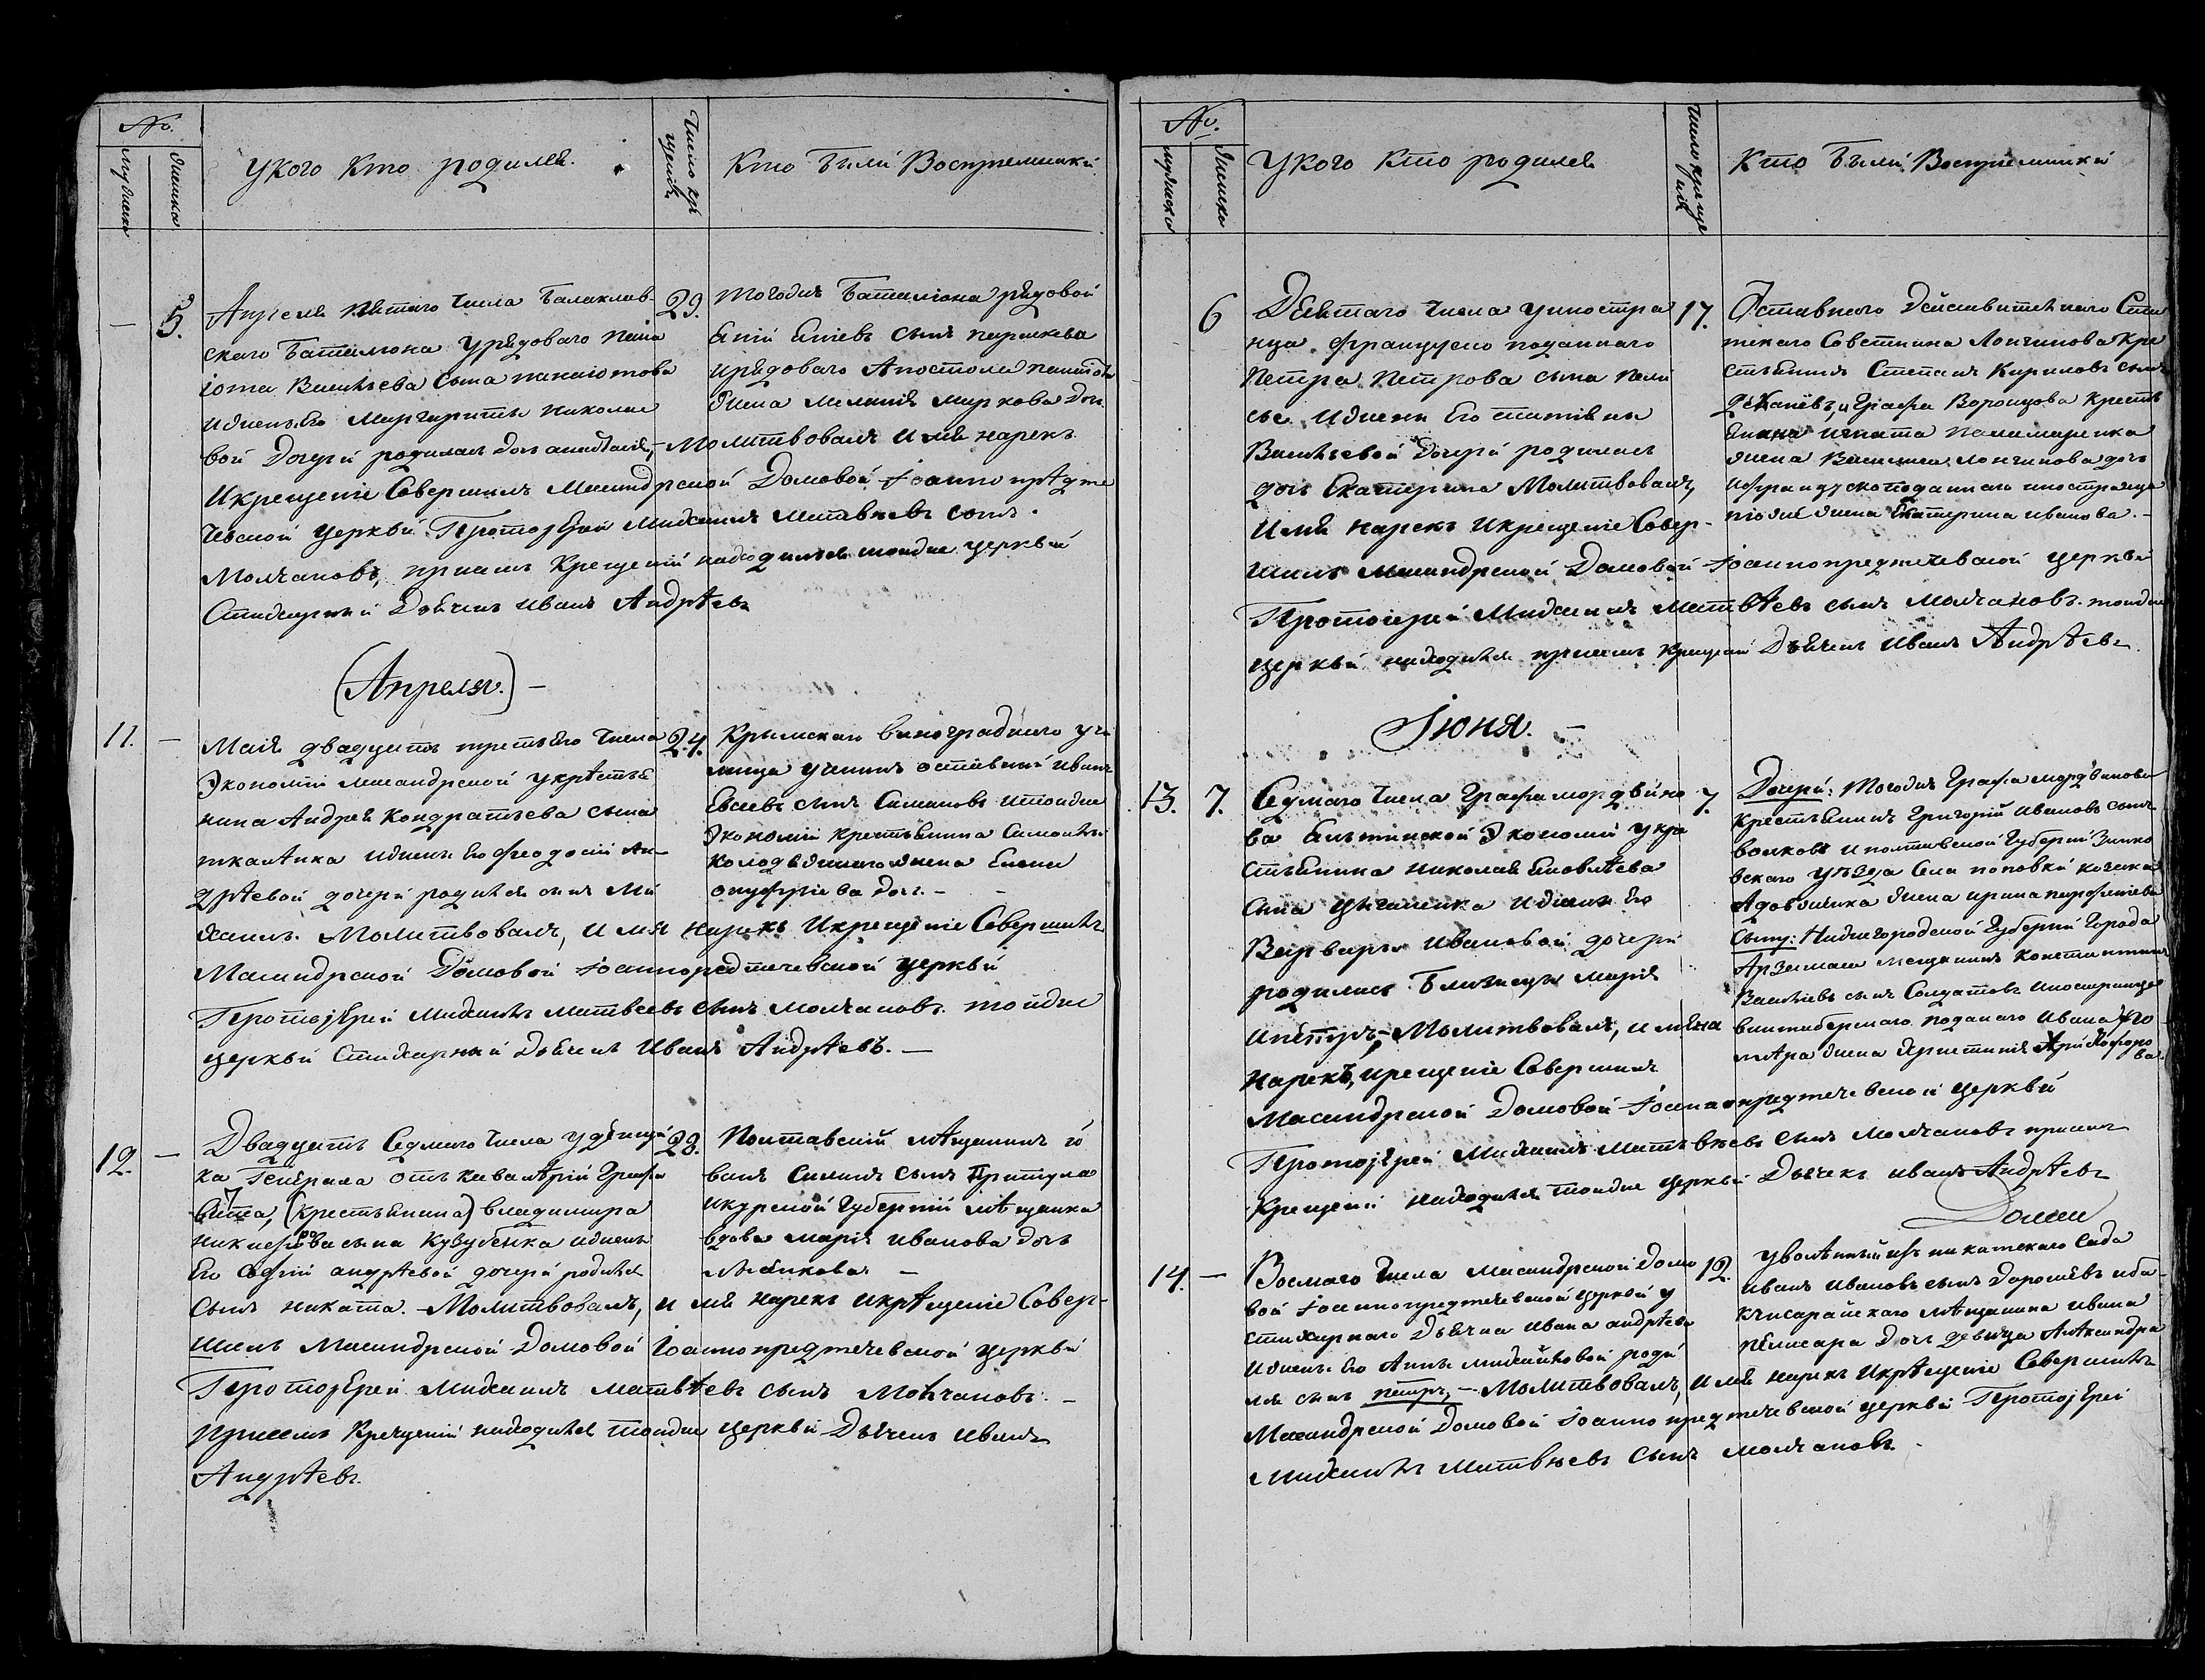 №.
Мужеска
Женска
Укого Кто родился.
Число кре
щенія
Кто были Восприемники.
—
5.
Апреля пятаго числа Балаклав-
скаго Баталиона Урядоваго Пана
іота Васильева Сына Панаіотова
ижены Его Маргариты Николае
вой Дочери родилась дочь Анастасія, – Молитвовалъ Имя нарекъ
Икрещеніе Совершилъ Масандрской Домовой Іоанно предте
чевской Церкви Протоіерей Михаилъ Матвѣевъ сынъ
Молчановъ, присемъ Крещеніи находился тойже церкви
Стихарный Дьячекъ Иванъ Андрѣевъ
29.
Тогожъ Баталіона рядовой
сынъ
ирядоваго Апостола
Жена Мелания Маркова Доч.
(Апреля.) –
11.
—
Маія двадцать третьяго Числа
Экономіи Масандрской укрѣстья
нина Андрея Кондратьева сына
ижены Его Феодосіи Ан-
дрѣевой дочери родился сынъ Ми
хаилъ. Молитвовалъ, Имя нарекъ Икрещеніе Совершилъ
Масандрской Домовой Іоаннопредтечевской церкви
Протоіерей Михаилъ Матвеевъ сынъ Молчановъ. тойже
церкви Стихарный Дьячекъ Иванъ Андрѣевъ. —
24.
Крымскаго виноградного учи
лища ученикъ Иванъ
сынъ Симановъ итойже
Экономіи крестьянина
жена Елена
онуфріева доч. –
12.
—
Двадцать Седмаго Числа
Генерала отъ Кавалѣріи Графа
Вита, (крестьянина) Владимира
Никифорова сына ижены
Его Софіи андрѣевой дочери родился
Сынъ Никита. – Молитвовалъ, и мя нарекъ икрѣщеніе Совер-
шилъ Масандрской Домовой Іоаннопредтечевской церкви
Протоіерей Михаилъ Матвѣевъ сынъ Молчановъ. –
присемъ Крещеніи находился тойже церкви Дьячекъ Иванъ
Андрѣевъ.
28.
Полтавскій мѣщанинъ И
ванъ сынъ Притула
икурской Губерніи мѣщанка
вдова Марія Иванова дочь
№.
мужеска
Женска
Укого Кто родился
Число креще
нія
Кто были Восприемники
6
Девятаго числа уиностра
нца французско поданнаго
Петра Петрова сына
ижены Его
Васильевой Дочери родилась
дочь Екатерина Молитвовалъ,
Имя нарекъ Икрещеніе Совер-
шилъ Масандрской Домовой Іоаннопредтечевской церкви
Протоіерей Михаилъ Матвѣевъ сынъ Молчановъ. тойже
церкви находился присемъ крещеніи Дьячекъ Иванъ Андрѣевъ
17.
Отставного Дѣйствительнаго Стат
скаго Советника Лончинова Кре
стьянинъ Степанъ Кириловъ сынъ
и Графа Воронцова крестья
нина игната
жена Василиса Лончинова дочь
ифранцускоподаннаго иностранца
жена Екатерина иванова. –
Іюня. –
13.
7.
Седмаго числа Графа Мордвино
ва Ялтинской Экономіи укре
стьянина Николая Яковлѣва
сына ижены Его
Варвары Ивановой дочери
родились Близнецы Марія
ипетръ, – Молитвовалъ, имена
нарекъ, икрещеніе Совершилъ
Масандрской Домовой Іоаннопредтечевской церкви
Протоіерей Михаилъ Матвѣевъ сынъ Молчановъ присемъ
Крещеніи находился тойже церкви Дьячекъ Иванъ Андрѣевъ
7.
Дочери: Тогожъ Графа Мордвинова
крестьянинъ Григорій Ивановъ сынъ
волковъ иполтавской Губерніи Зинко
вскаго уѣзда Села поповки
жена ирина
Сыну: Нижегородской Губерніи Города
Арзамаса Мещанинъ Константинъ
Васильевъ сынъ Солдатовъ иностранца
виртембергскаго поданаго Ивана
жена Христинія Христофоро
ва.
14.
—
Восмаго числа Масандрской Домо
вой Іоаннопредтечевской церкви у
стихарнаго Дьячка Ивана андрѣева
ижены Его Анны Михайловой роди
лся сынъ петръ, – Молитвовалъ, имя нарекъ Икрѣщеніе Совершилъ
Масандрской Домовой Іоаннопредтечевской церкви Протоіерей
Михаилъ Матвѣевъ сынъ Молчановъ.
12.
Уволѣнный изъ никитскаго Сада
иванъ Ивановъ сынъ Дорошевъ иба-
хчисарайскаго мѣщанина ивана
дочь девица Алѣксандра